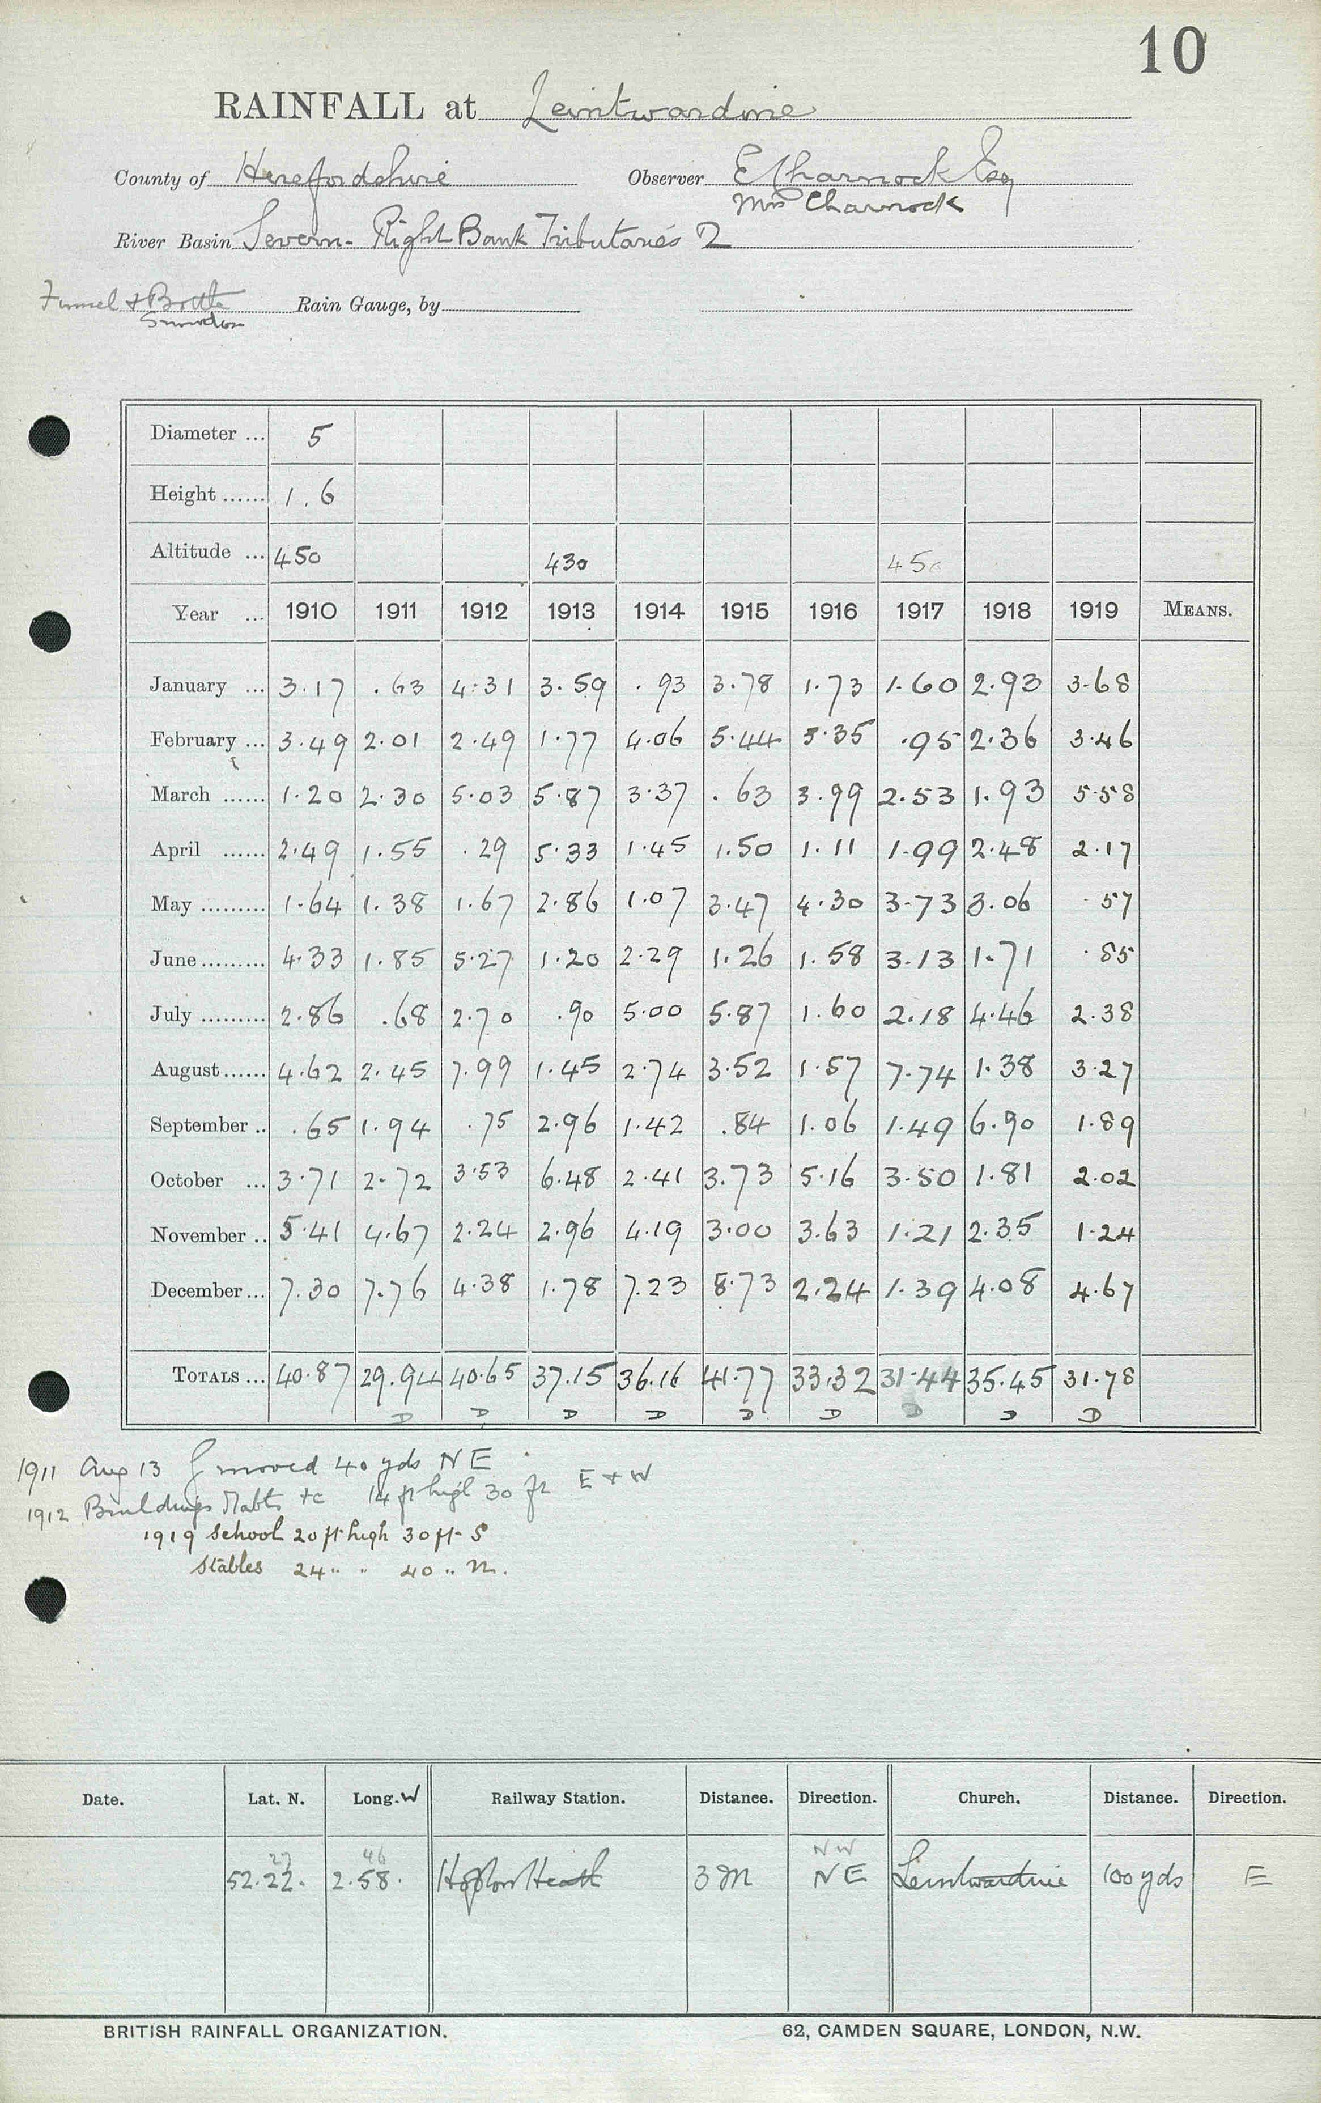 10
RAINFALL at Leintwardine
County of Herefordshire Observer E Charnock Esq
Mrs Charnock
River Basin Severn - Right Bank Tributaries 2
Funnel & Bottle Rain Gauge, by
Snowdon
Diameter ... 5
Height ...... 1.6
Altitude ... 450 430 450
Year ... 1910 1911 1912 1913 1914 1915 1916 1917 1918 1919 MEANS.
January ... 3.17 .63 4.31 3.59 .93 3.78 1.73 1.60 2.93 3.68
February ... 3.49 2.01 2.49 1.77 4.06 5.44 5.35 .95 2.36 3.46
March ...... 1.20 2.30 5.03 5.87 3.37 .63 3.99 2.53 1.93 5.58
April ...... 2.49 1.55 .29 5.33 1.45 1.50 1.11 1.99 2.48 2.17
May ......... 1.64 1.38 1.67 2.86 1.07 3.47 4.30 3.73 3.06 .57
June ......... 4.33 1.85 5.27 1.20 2.29 1.26 1.58 3.13 1.71 .85
July ......... 2.86 .68 2.70 .90 5.00 5.87 1.60 2.18 4.46 2.38
August ...... 4.62 2.45 7.99 1.45 2.74 3.52 1.57 7.74 1.38 3.27
September .. .65 1.94 .75 2.96 1.42 .84 1.06 1.49 6.90 1.89
October ... 3.71 2.72 3.53 6.48 2.41 3.73 5.16 3.50 1.81 2.02
November .. 5.41 4.67 2.24 2.96 4.19 3.00 3.63 1.21 2.35 1.24
December ... 7.30 7.76 4.38 1.78 7.23 8.73 2.24 1.39 4.08 4.67
TOTALS ... 40.87 29.94 40.65 37.15 36.16 41.77 33.32 31.44 35.45 31.78
D D D D D D D D D
1911 Aug 13 G moved 40 yds NE
1912 Buildings &c 14 ft high 30 ft E & W
1919 School 20 ft high 30 ft S
Stables 24 " " 40 " N.
Date. Lat. N. Long. W Railway Station. Distance. Direction. Church. Distance. Direction.
27 46 NW
52.22. 2.58. Hopton Heath 3 M NE Leintwardine 100 yds E
BRITISH RAINFALL ORGANIZATION. 62, CAMDEN SQUARE, LONDON, N.W.